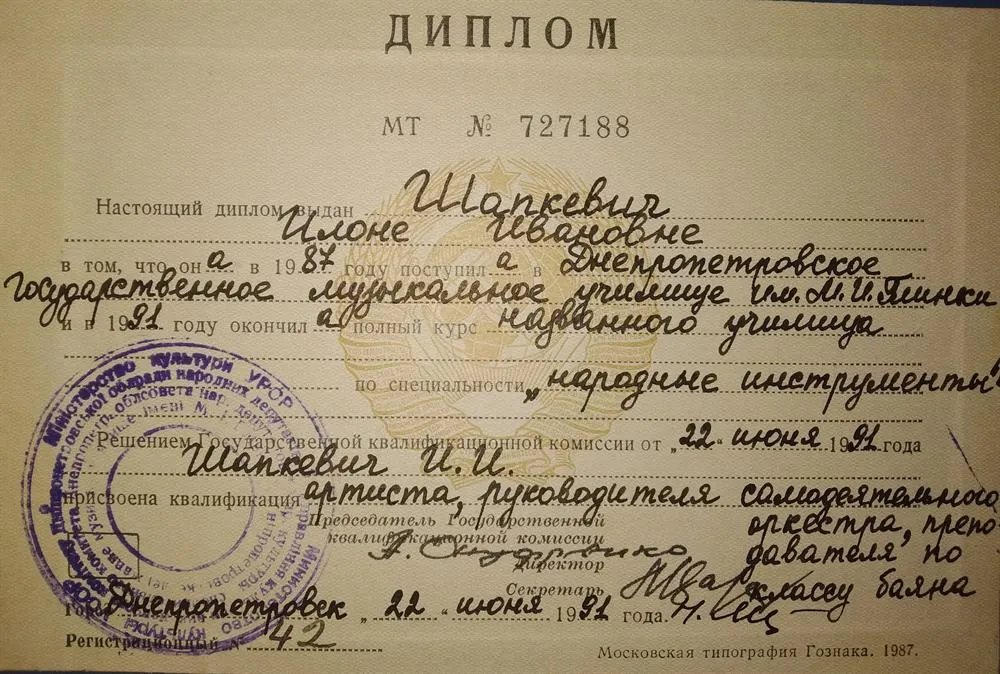 ДИПЛОМ
МТ № 727188
Настоящий диплом выдан Шапкевич
Илоне Ивановне
в том, что он а в 1987 году поступил а в Днепропетровское
государственное музыкальное училище им. М.И. Глинки
и в 1991 году окончил а полный курс названного училища
по специальности „народные инструменты"
Решением Государственной квалификационной комиссии от „22" июня 1991 года
Шапкевич И. И.
присвоена квалификация артиста, руководителя самодеятельного
оркестра, препо
давателя по
классу баяна
Председатель Государственной
квалификационной комиссии
Директор
Секретарь
Город Днепропетровск „22" июня 1991 года.
Регистрационный № 42
Московская типография Гознака. 1987.
Міністерство культури УРСР